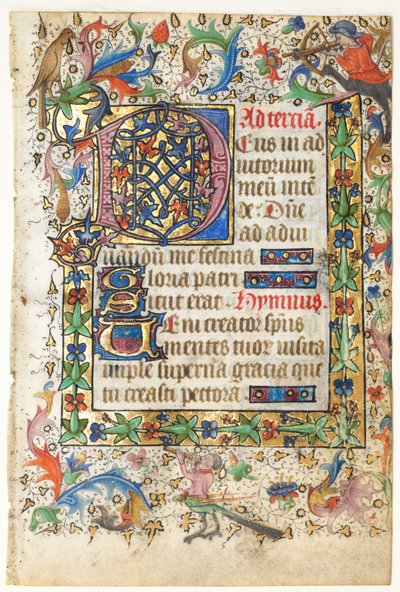 Ad terciã.
Deus in ad
iutorium
meũ inte
de: Dñe
ad adiu
uandũ me festina
Gloria patri
Sicut erat Hymnus.
Veni creator spũs
mentes tuoꝝ visita
imple superna gracia que
tu creasti pectora